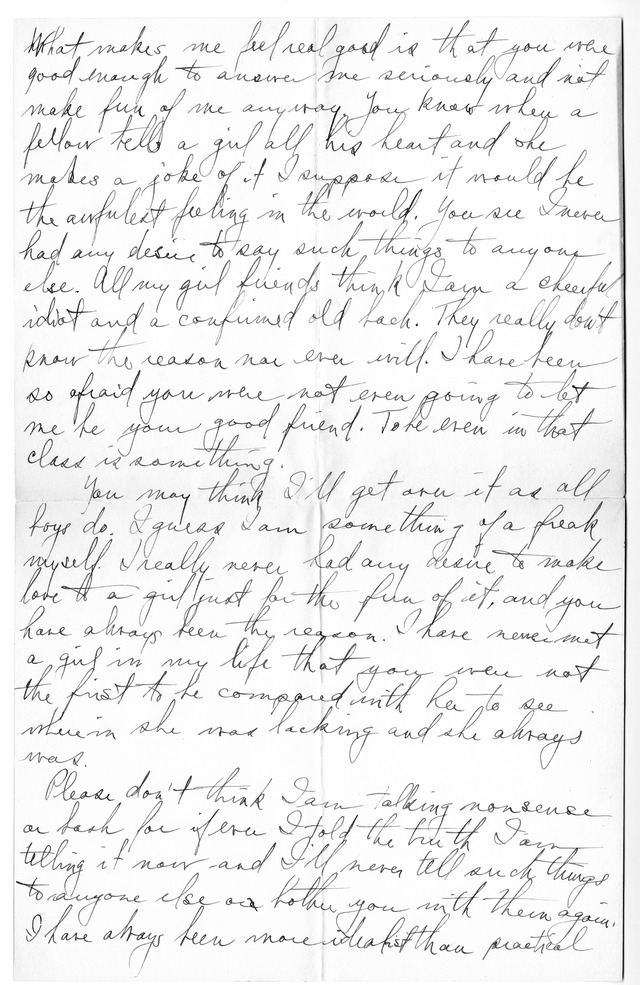 What makes me feel real good is that you were
good enough to answer me seriously and not
make fun of me anyway. You know when a
fellow tells a girl all his heart and she
makes a joke of it I suppose it would be
the awfulest feeling in the world. You see I never
had any desire to say such things to anyone
else. All my girl friends think I am a cheerful
idiot and a confirmed old bach. They really don't
know the reason nor ever will. I have been
so afraid you were not even going to let
me be your good friend. To be even in that
class is something.
You may think I'll get over it as all
boys do. I guess I am something of a freak
myself. I really never had any desire to make
love to a girl just for the fun of it, and you
have always been the reason. I have never met
a girl in my life that you were not
the first to be compared with her to see
wherein she was lacking and she always
was.
Please don't think I am talking nonsense
or bosh for if ever I told the truth I am
telling it now and I'll never tell such things
to anyone else or bother you with them again.
I have always been more idealist than practical